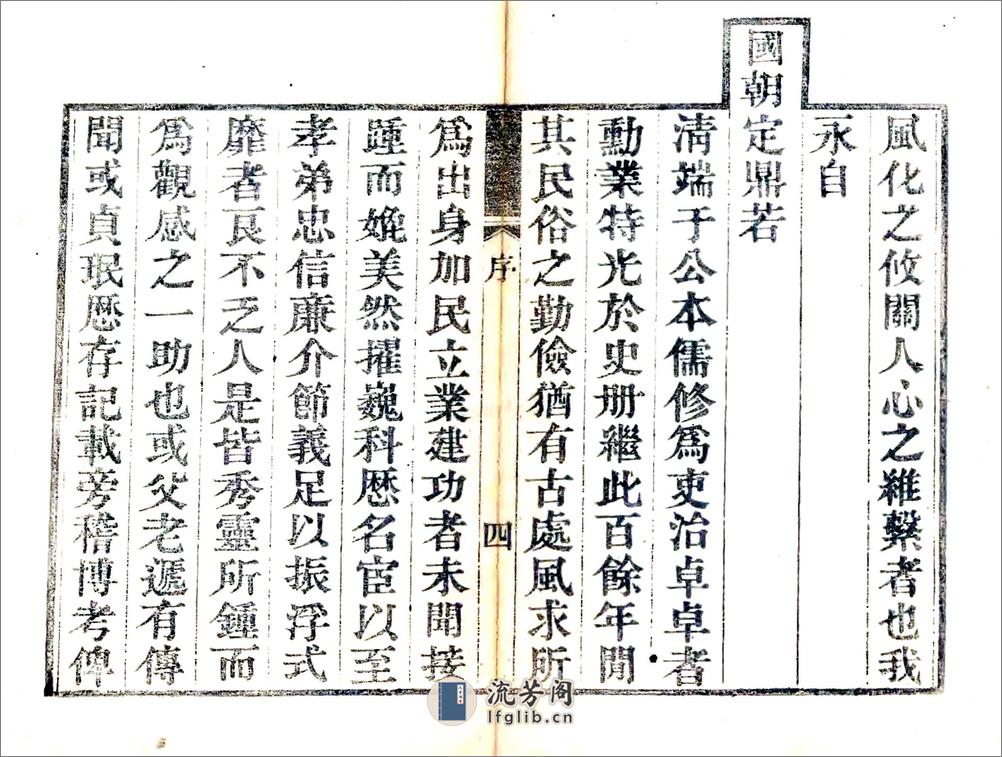 風化之攸關人心之維繫者也我
永自
國朝定鼎若
淸端于公本儒修爲吏治卓卓者
勳業特光於史册繼此百餘年間
其民俗之勤儉猶有古處風求所
序
四
爲出身加民立業建功者未聞接
踵而媲美然擢巍科歷名宦以至
孝弟忠信廉介節義足以振浮式
靡者良不乏人是皆秀靈所鍾而
爲觀感之一助也或父老遞有傳
聞或貞珉歷存記載旁稽博考俾
流芳阁
lfglib.cn